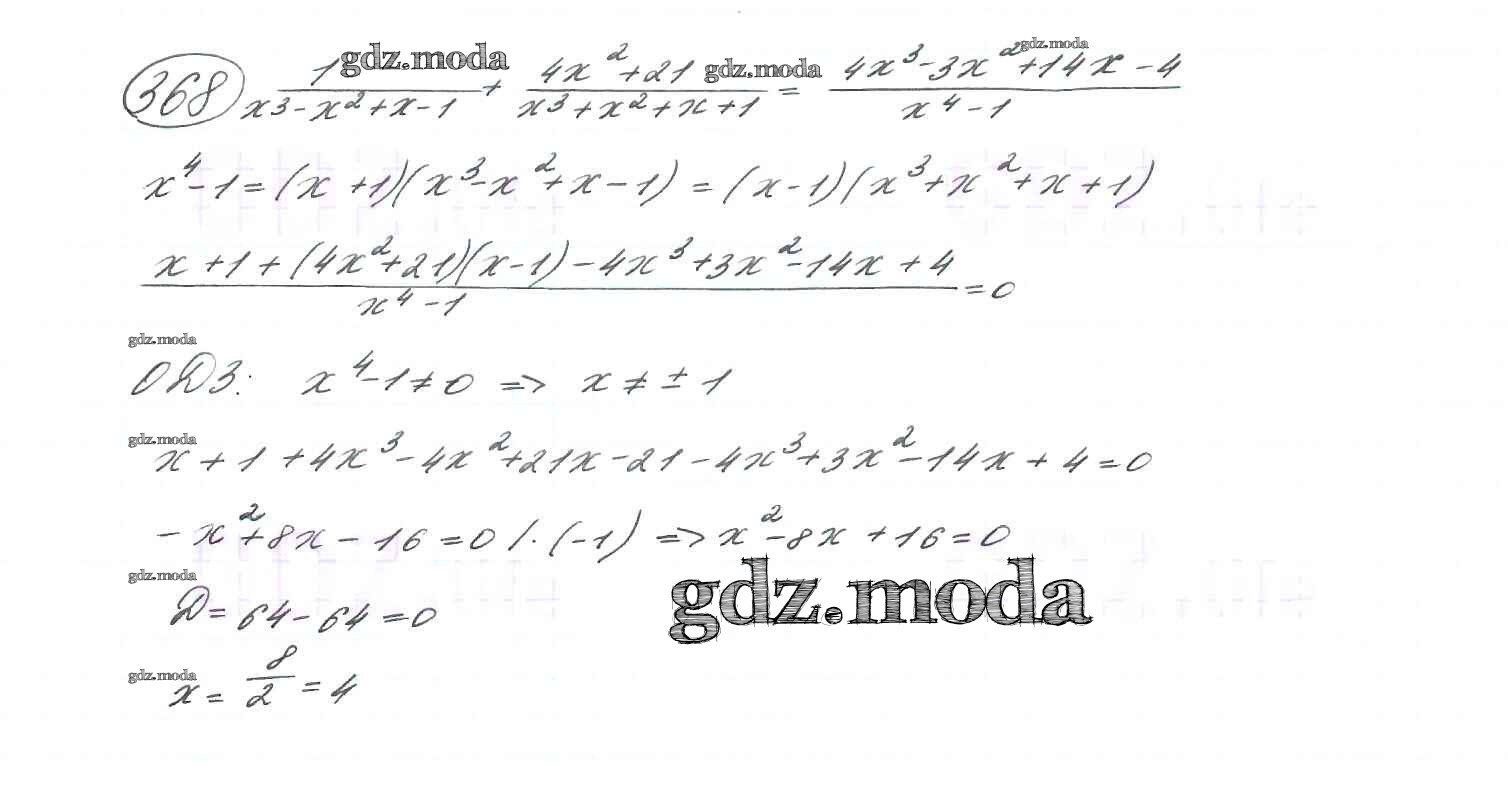 368 1/(x³-x²+x-1) + (4x²+21)/(x³+x²+x+1) = (4x³-3x²+14x-4)/(x⁴-1)
gdz.moda gdz.moda gdz.moda
x⁴-1=(x+1)(x³-x²+x-1)=(x-1)(x³+x²+x+1)
(x+1+(4x²+21)(x-1)-4x³+3x²-14x+4)/(x⁴-1)=0
gdz.moda
ОДЗ: x⁴-1≠0 => x≠±1
gdz.moda
x+1+4x³-4x²+21x-21-4x³+3x²-14x+4=0
-x²+8x-16=0 /·(-1) => x²-8x+16=0
gdz.moda
gdz.moda
Д=64-64=0
gdz.moda
x=8/2=4